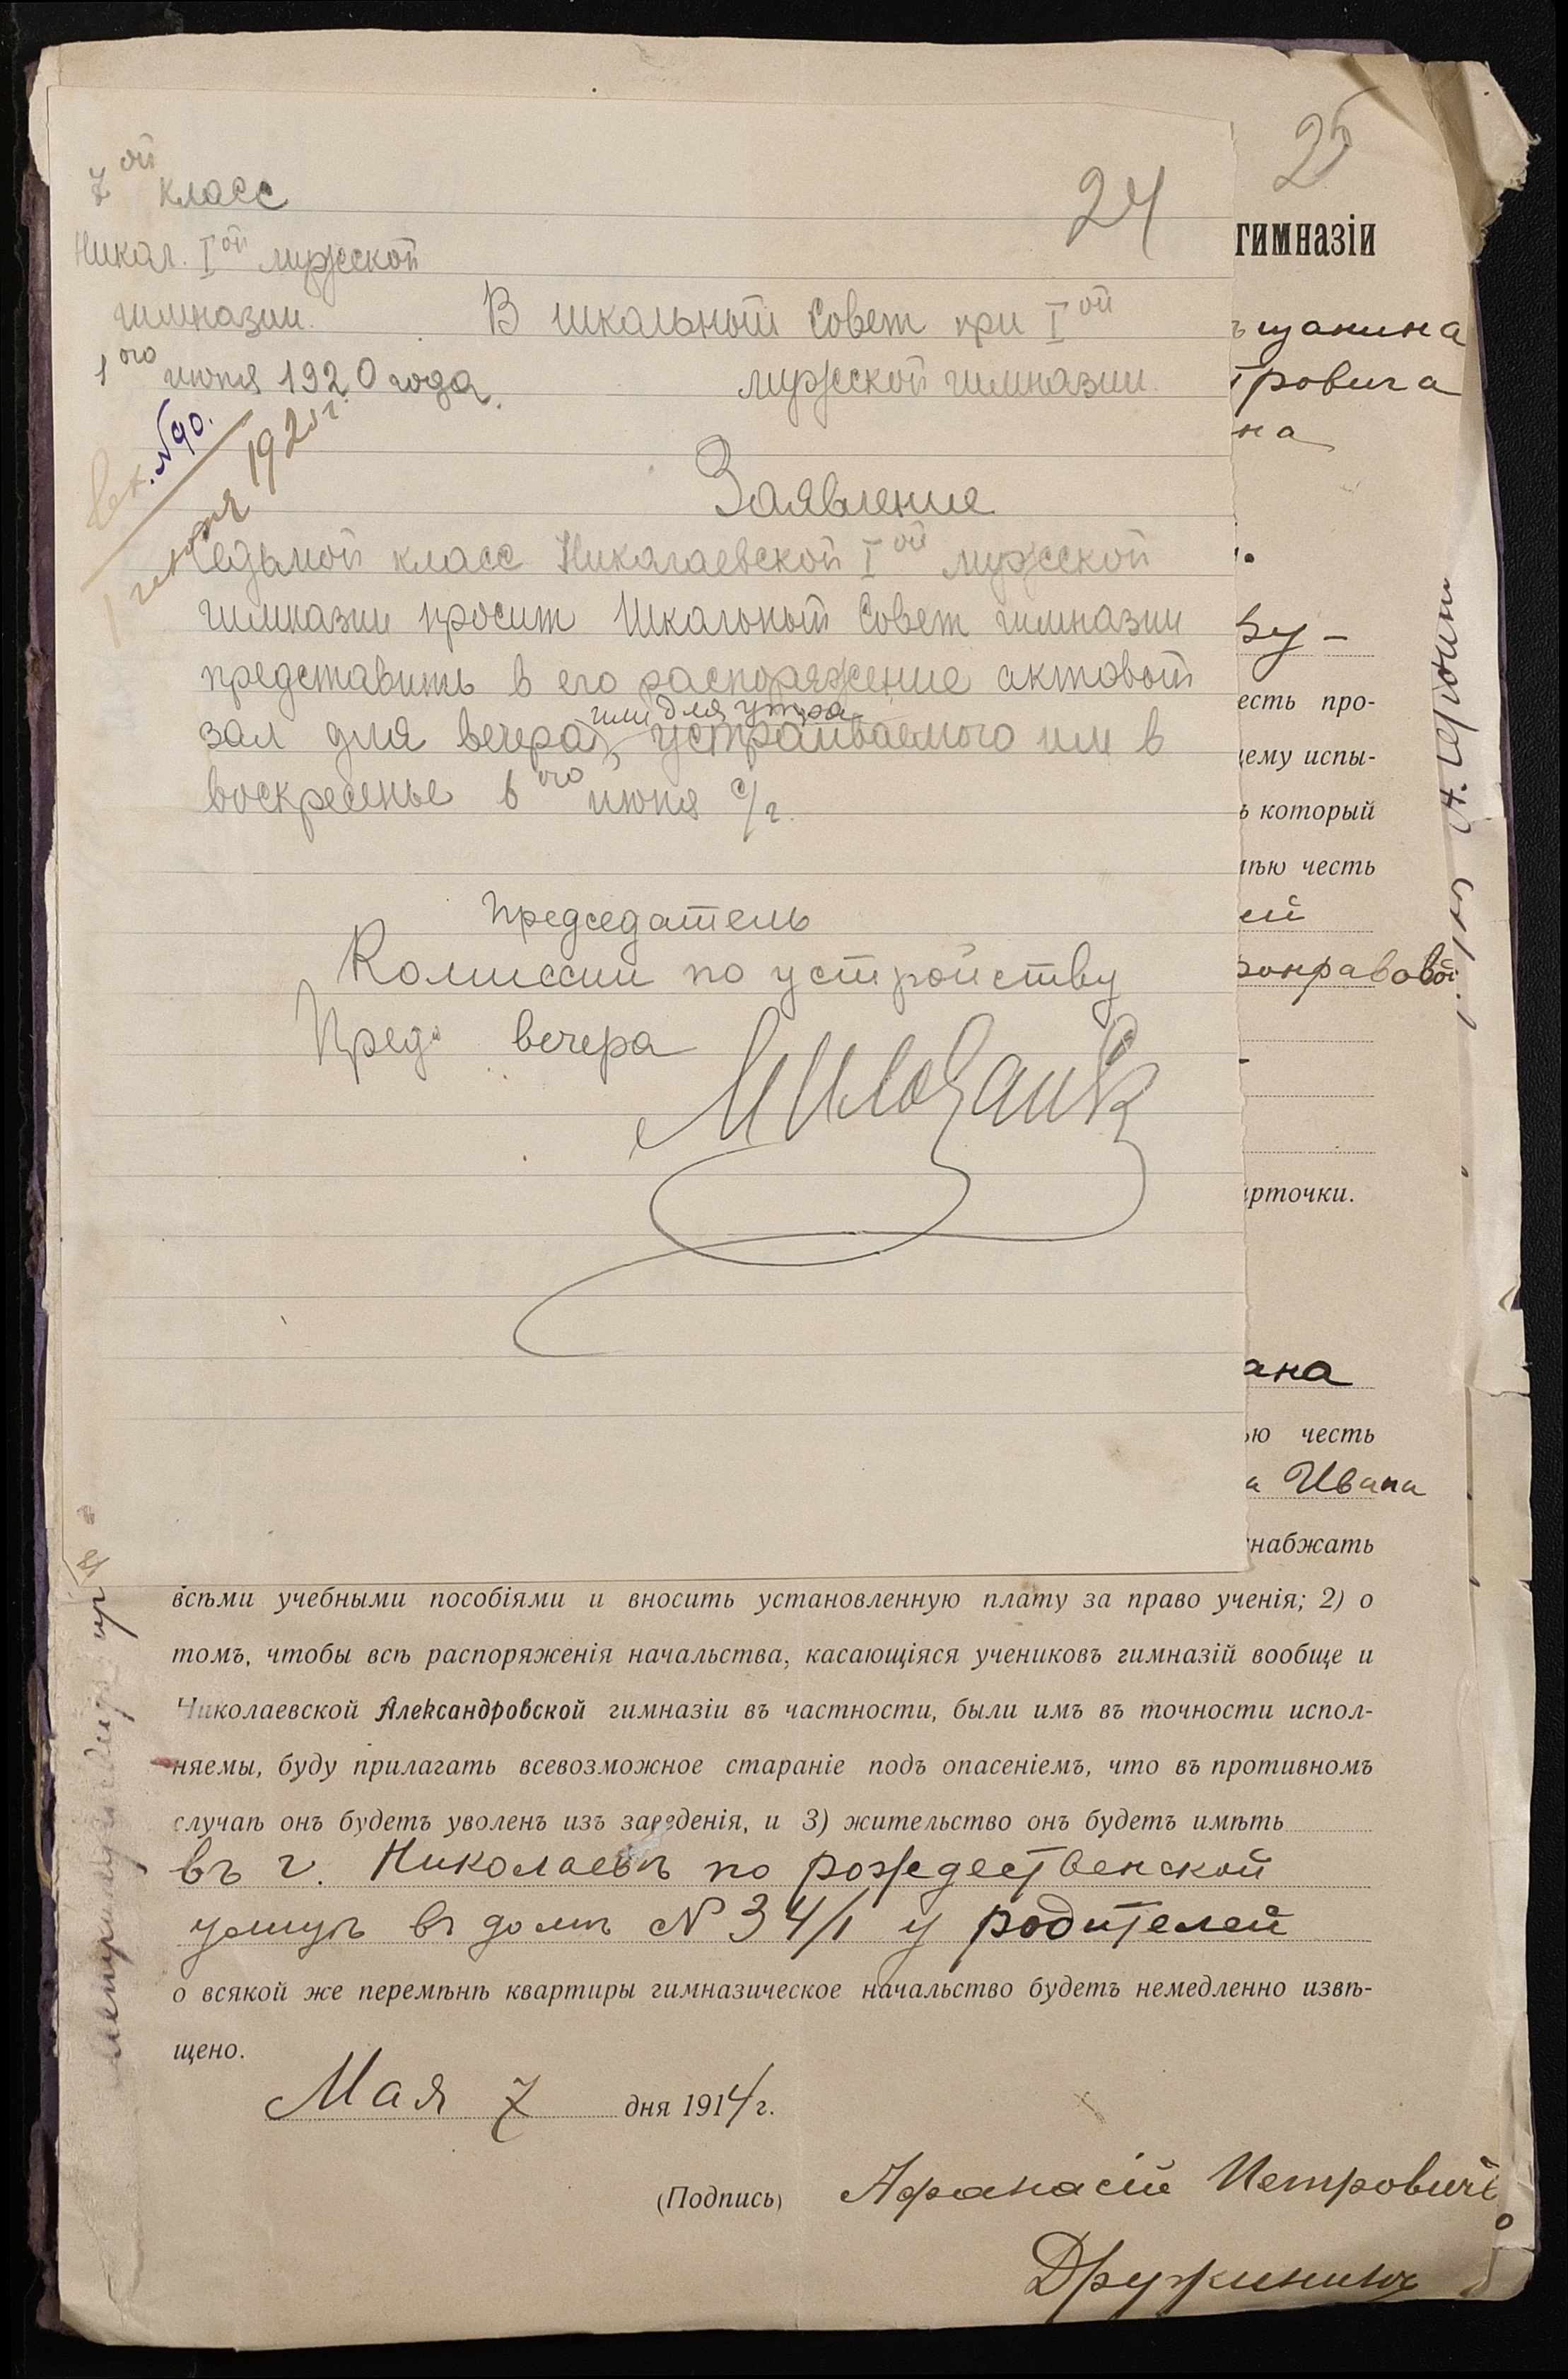 24
25
7ой класс
Никол. Iой мужской
гимназии.
1ого июня 1920 года.
В школьный Совет при Iой
мужской гимназии.
Вх. №90.
1 июня 1920 г.
Заявление
Седьмой класс Николаевской Iой мужской
гимназии просит Школьный Совет гимназии
представить в его распоряжение актовый
зал для вечера, или для утра устраиваемого им в
воскресенье 6ого июня с/г.
Председатель
Комиссии по устройству
Пред. вечера
гимназіи
ъщанина
тровича
на
ву-
есть про-
ему испы-
ь который
ѣю честь
ей
ронравовой
рточки.
ана
ью честь
а Ивана
снабжать
всѣми учебными пособіями и вносить установленную плату за право ученія; 2) о
томъ, чтобы всѣ распоряженія начальства, касающіяся учениковъ гимназій вообще и
Николаевской Александровской гимназіи въ частности, были имъ въ точности испол-
няемы, буду прилагать всевозможное стараніе подъ опасеніемъ, что въ противномъ
случаѣ онъ будетъ уволенъ изъ заведенія, и 3) жительство онъ будетъ имѣть
въ г. Николаевѣ по рождественской
улицѣ въ домѣ № 34/1 у родителей
о всякой же перемѣнѣ квартиры гимназическое начальство будетъ немедленно извѣ-
щено.
Мая 7 дня 1914 г.
(Подпись) Афанасій Петровичъ
Дружининъ